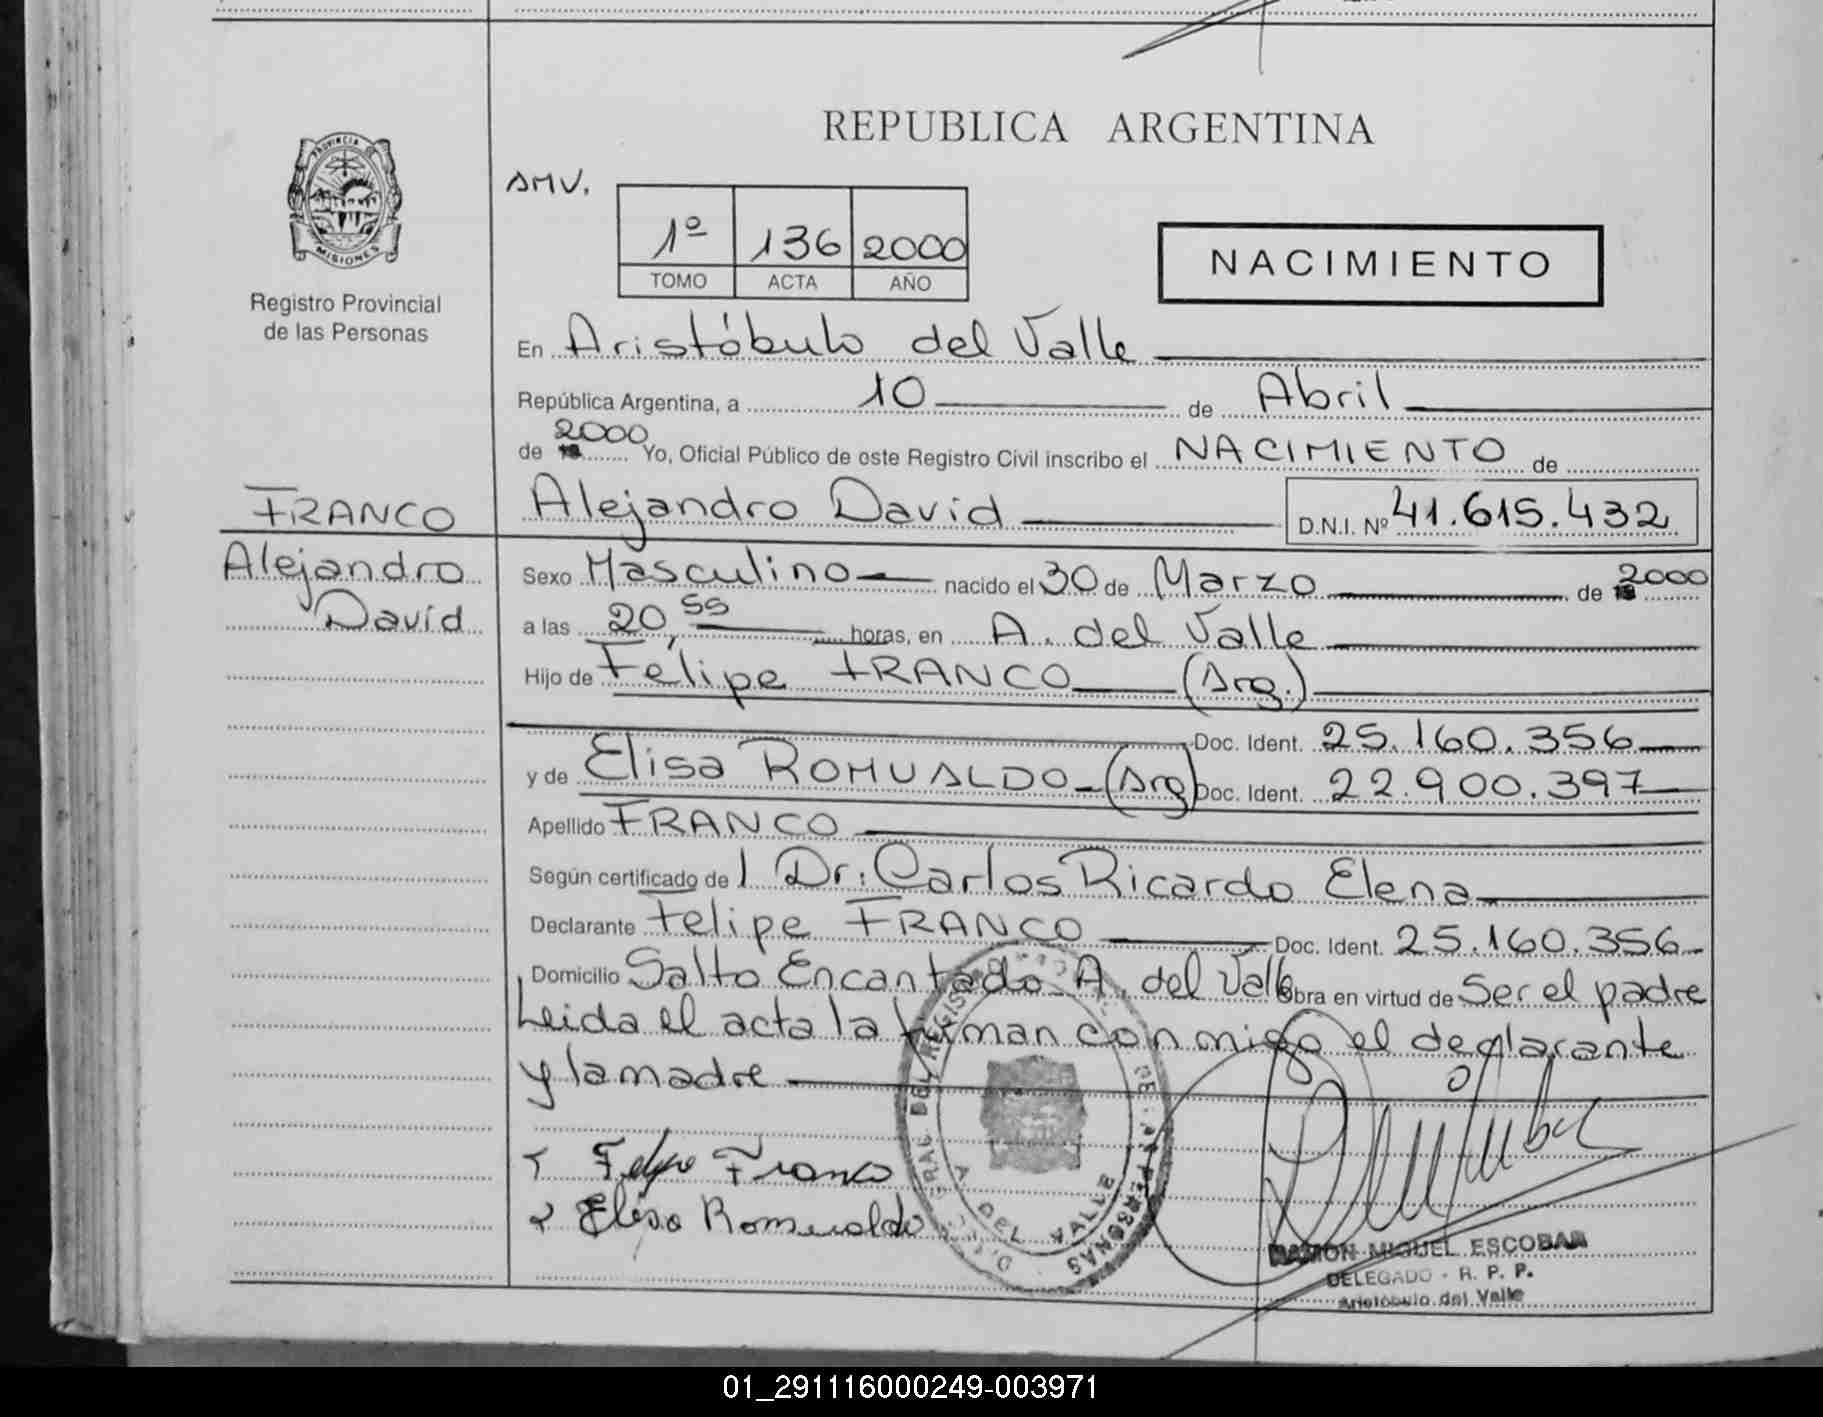 REPUBLICA ARGENTINA
PROVINCIA DE MISIONES
Registro Provincial
de las Personas
AMV.
1º 136 2000
TOMO ACTA AÑO
NACIMIENTO
En Aristóbulo del Valle
República Argentina, a 10 de Abril
de 2000 Yo, Oficial Público de este Registro Civil inscribo el NACIMIENTO de
FRANCO
Alejandro
David
Alejandro David D.N.I. Nº 41.615.432
Sexo Masculino nacido el 30 de Marzo de 2000
a las 20,55 horas, en A. del Valle
Hijo de Felipe FRANCO (Arg.)
Doc. Ident. 25.160.356
y de Elisa ROMUALDO (Arg) Doc. Ident. 22.900.397
Apellido FRANCO
Según certificado de l Dr. Carlos Ricardo Elena
Declarante Felipe FRANCO Doc. Ident. 25.160.356
Domicilio Salto Encantado A. del Valle Obra en virtud de Ser el padre
Leida el acta la firman conmigo el declarante
y la madre
Felipe Franco
Elisa Romualdo
DEL REGISTRO DE LAS PERSONAS
A. DEL VALLE
RAMON MIGUEL ESCOBAR
DELEGADO - R. P. P.
Aristóbulo del Valle
01_291116000249-003971